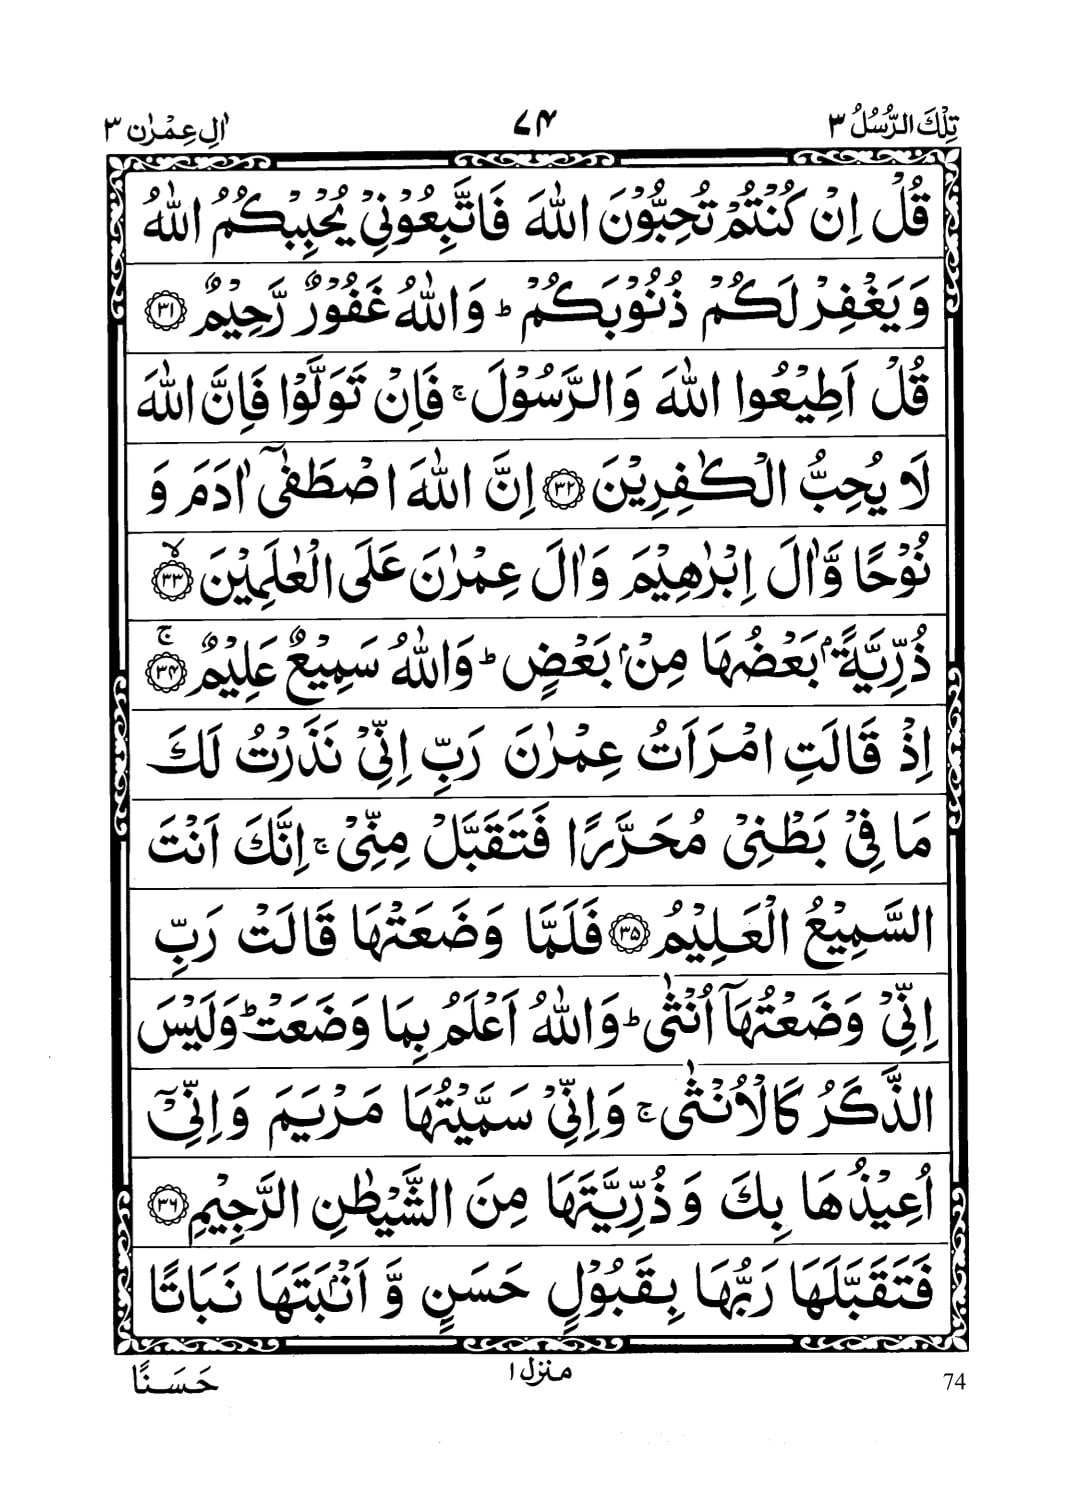 تِلْكَ الرُّسُلُ ٣
٧٤
اٰلِ عِمْرٰن ٣
قُلْ اِنْ كُنْتُمْ تُحِبُّوْنَ اللّٰهَ فَاتَّبِعُوْنِيْ يُحْبِبْكُمُ اللّٰهُ
وَيَغْفِرْ لَكُمْ ذُنُوْبَكُمْ ؕ وَاللّٰهُ غَفُوْرٌ رَّحِيْمٌ ﴿۳۱﴾
قُلْ اَطِيْعُوا اللّٰهَ وَالرَّسُوْلَ ۚ فَاِنْ تَوَلَّوْا فَاِنَّ اللّٰهَ
لَا يُحِبُّ الْكٰفِرِيْنَ ﴿۳۲﴾ اِنَّ اللّٰهَ اصْطَفٰۤى اٰدَمَ وَ
نُوْحًا وَّاٰلَ اِبْرٰهِيْمَ وَاٰلَ عِمْرٰنَ عَلَى الْعٰلَمِيْنَ ۙ﴿۳۳﴾
ذُرِّيَّةًۢ بَعْضُهَا مِنْۢ بَعْضٍ ؕ وَاللّٰهُ سَمِيْعٌ عَلِيْمٌ ۚ﴿۳۴﴾
اِذْ قَالَتِ امْرَاَتُ عِمْرٰنَ رَبِّ اِنِّيْ نَذَرْتُ لَكَ
مَا فِيْ بَطْنِيْ مُحَرَّرًا فَتَقَبَّلْ مِنِّيْ ۚ اِنَّكَ اَنْتَ
السَّمِيْعُ الْعَلِيْمُ ﴿۳۵﴾ فَلَمَّا وَضَعَتْهَا قَالَتْ رَبِّ
اِنِّيْ وَضَعْتُهَاۤ اُنْثٰى ؕ وَاللّٰهُ اَعْلَمُ بِمَا وَضَعَتْ ؕ وَلَيْسَ
الذَّكَرُ كَالْاُنْثٰى ۚ وَاِنِّيْ سَمَّيْتُهَا مَرْيَمَ وَاِنِّيْۤ
اُعِيْذُهَا بِكَ وَذُرِّيَّتَهَا مِنَ الشَّيْطٰنِ الرَّجِيْمِ ﴿۳۶﴾
فَتَقَبَّلَهَا رَبُّهَا بِقَبُوْلٍ حَسَنٍ وَّ اَنْۢبَتَهَا نَبَاتًا
حَسَنًا
منزل ۱
74